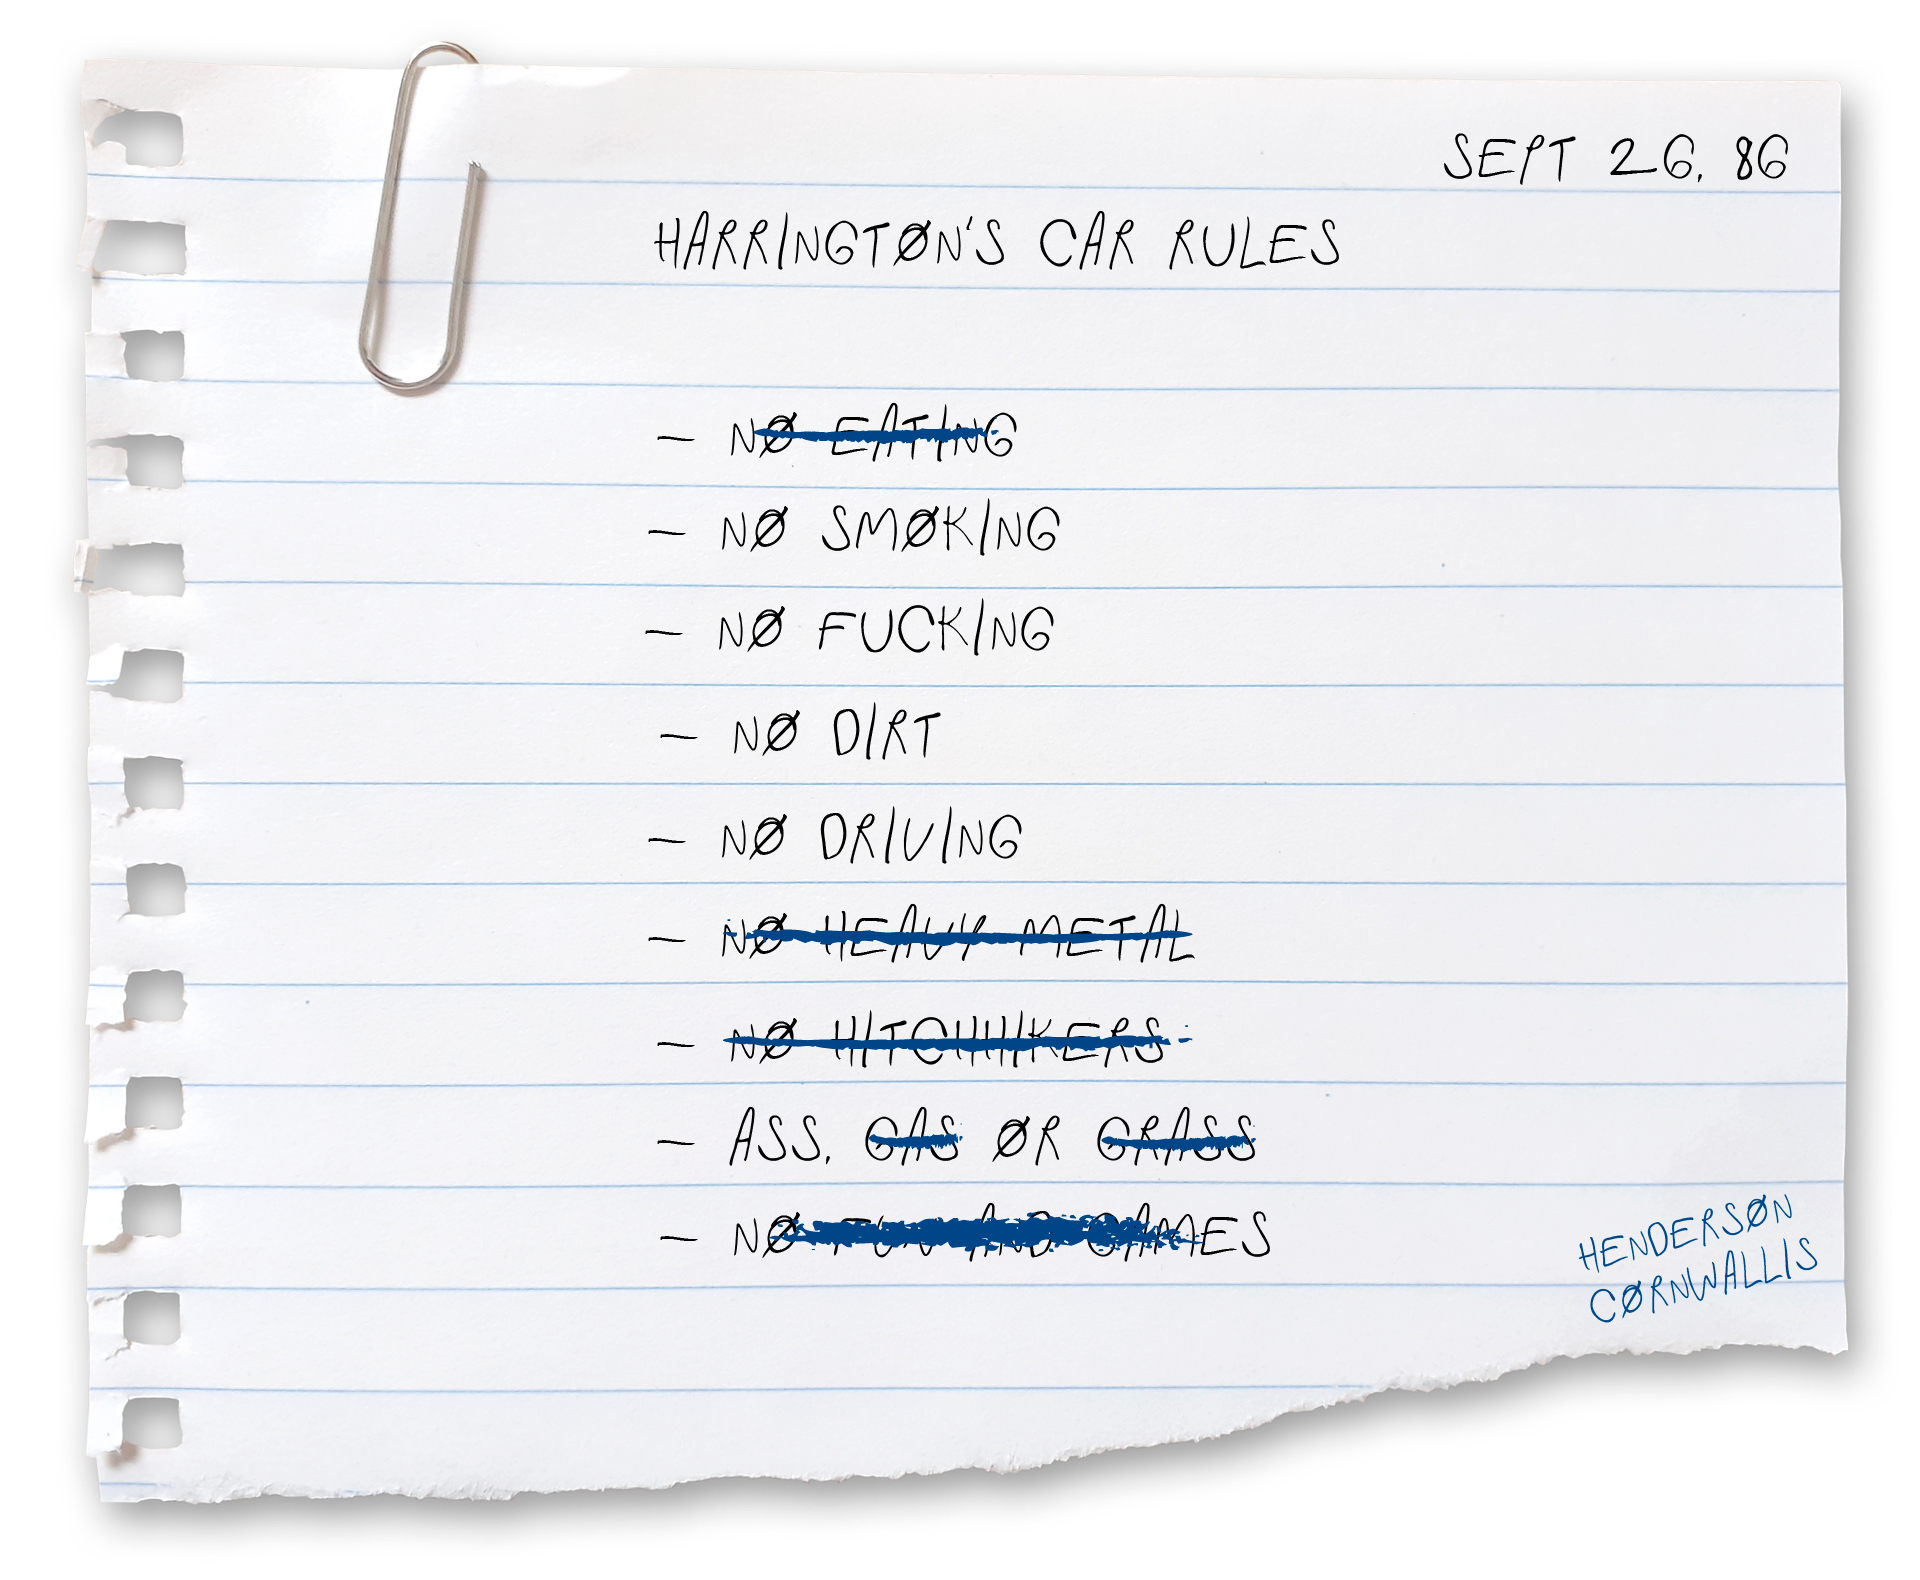 SEPT 26, 86
HARRINGTØN'S CAR RULES
– NØ EATING
– NØ SMØKING
– NØ FUCKING
– NØ DIRT
– NØ DRIVING
– NØ HEAVY METAL
– NØ HITCHHIKERS
– ASS, GAS ØR GRASS
– NØ FUN AND GAMES
HENDERSØN
CØRNWALLIS